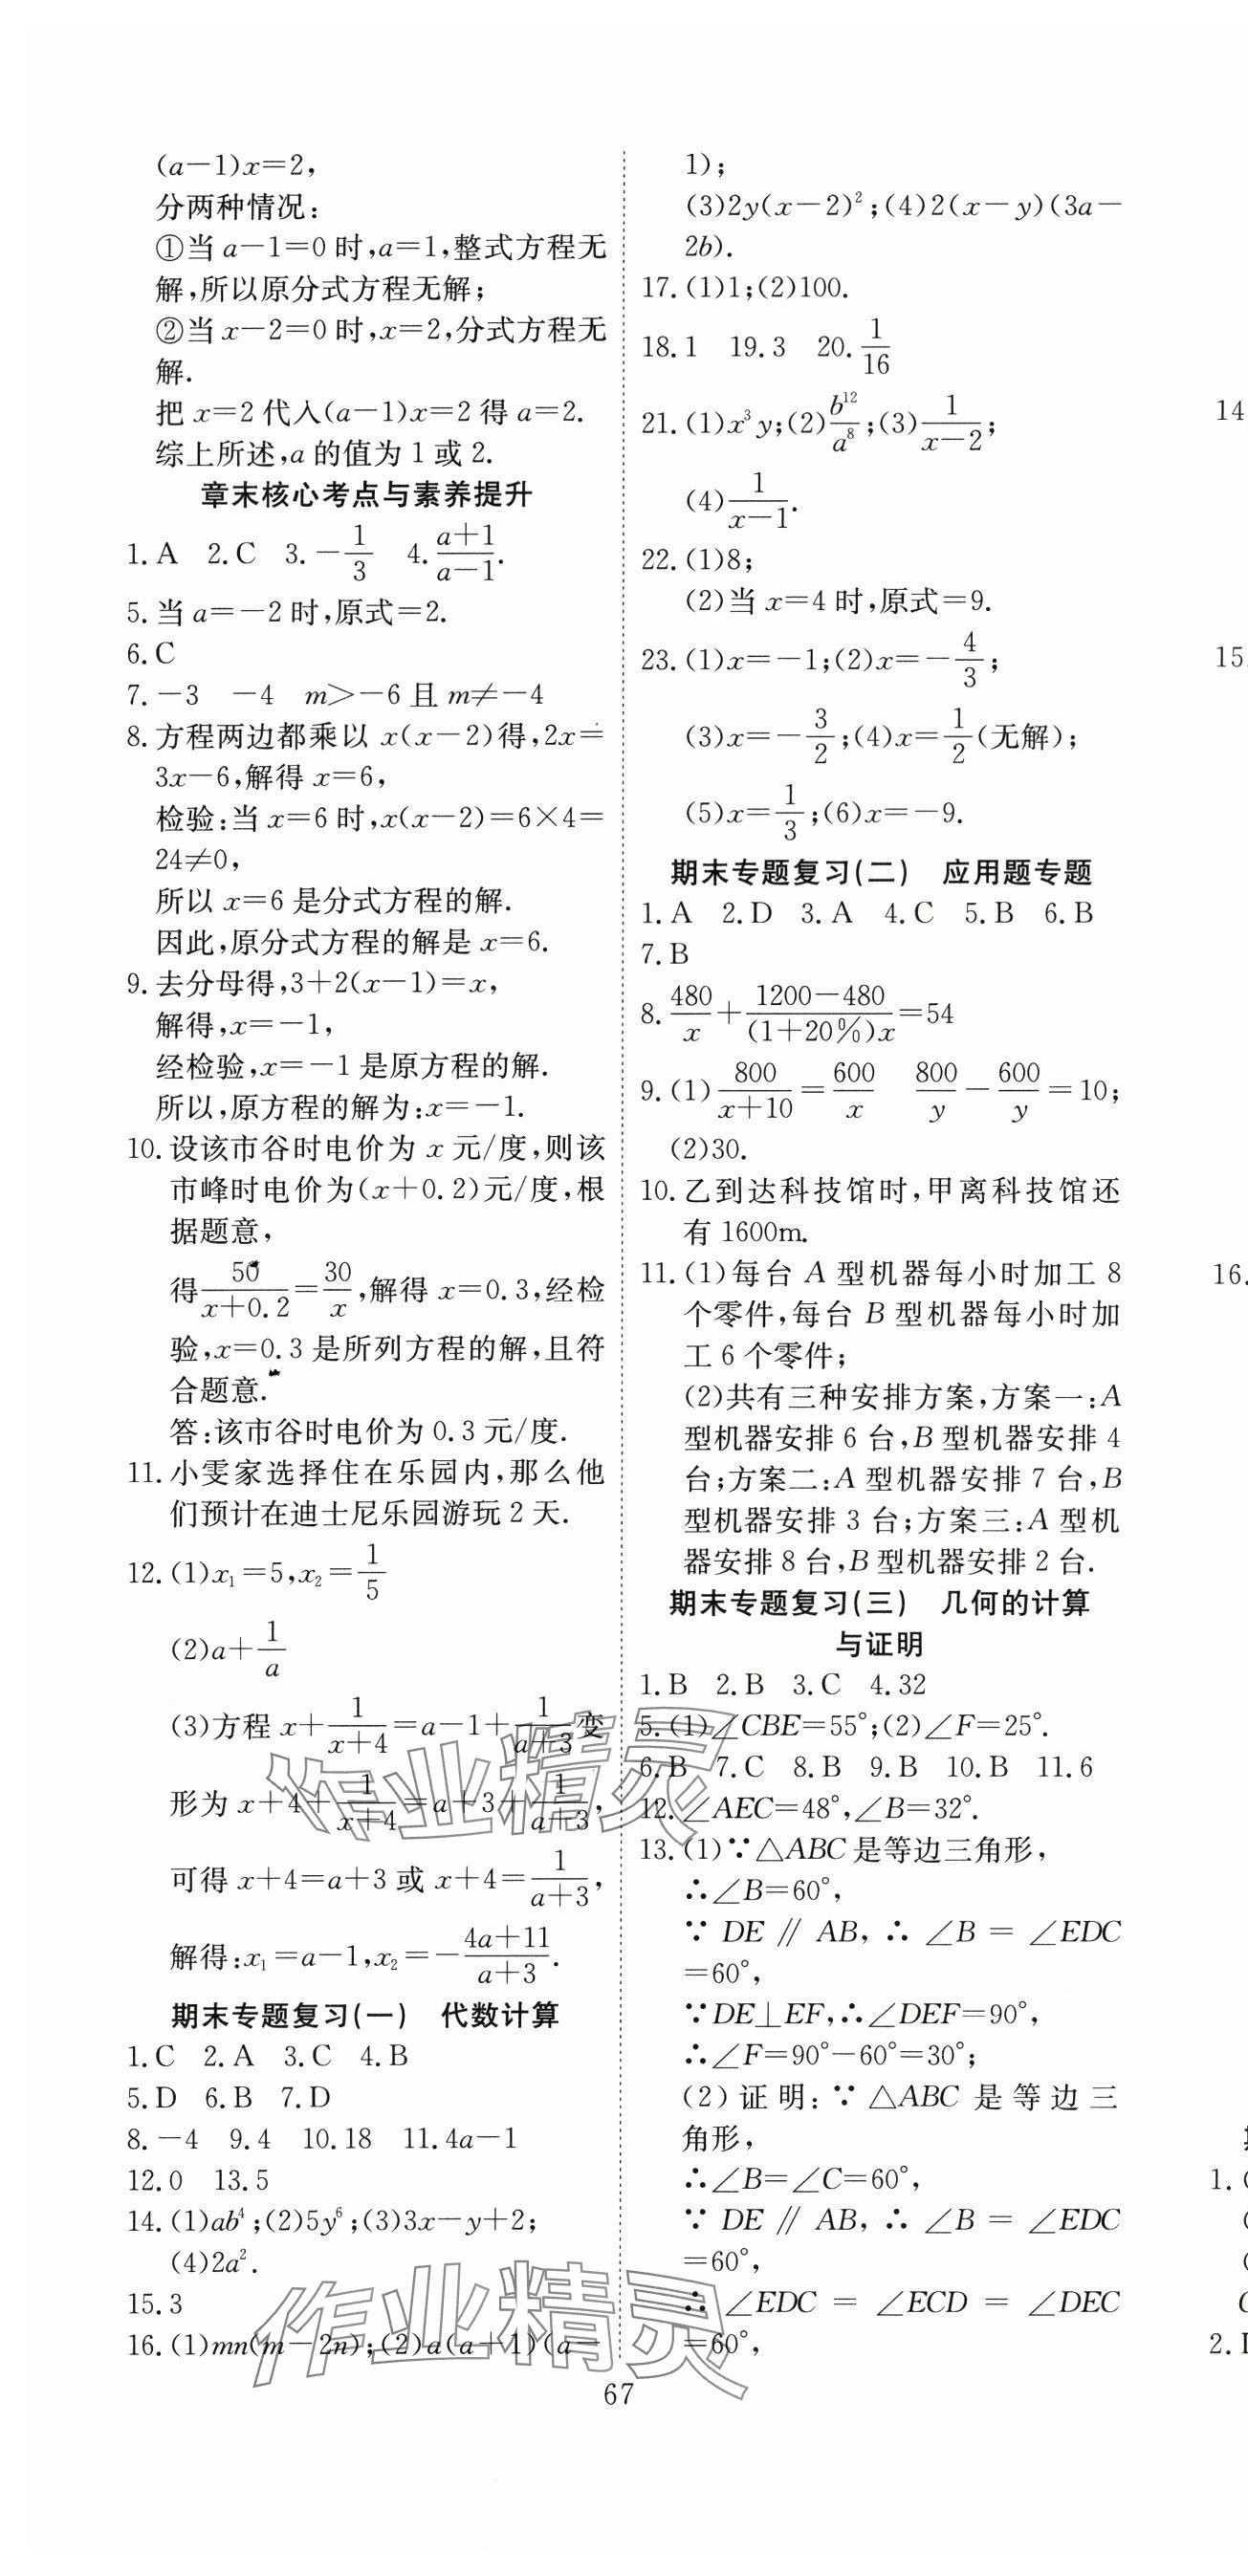 (a－1)x＝2,
分两种情况:
①当 a－1＝0 时,a＝1,整式方程无
解,所以原分式方程无解;
②当 x－2＝0 时,x＝2,分式方程无
解.
把 x＝2 代入(a－1)x＝2 得 a＝2.
综上所述,a 的值为 1 或 2.
章末核心考点与素养提升
1. A　2. C　3. －1/3　4. (a＋1)/(a－1).
5. 当 a＝－2 时,原式＝2.
6. C
7. －3　－4　m＞－6 且 m≠－4
8. 方程两边都乘以 x(x－2)得,2x＝
3x－6,解得 x＝6,
检验:当 x＝6 时,x(x－2)＝6×4＝
24≠0,
所以 x＝6 是分式方程的解.
因此,原分式方程的解是 x＝6.
9. 去分母得,3＋2(x－1)＝x,
解得,x＝－1,
经检验,x＝－1 是原方程的解.
所以,原方程的解为:x＝－1.
10. 设该市谷时电价为 x 元/度,则该
市峰时电价为(x＋0.2)元/度,根
据题意,
得 50/(x＋0.2)＝30/x,解得 x＝0.3,经检
验,x＝0.3 是所列方程的解,且符
合题意.
答:该市谷时电价为 0.3 元/度.
11. 小雯家选择住在乐园内,那么他
们预计在迪士尼乐园游玩 2 天.
12. (1)x₁＝5,x₂＝1/5
(2)a＋1/a
(3)方程 x＋1/(x＋4)＝a－1＋1/(a＋3)变
形为 x＋4＋1/(x＋4)＝a＋3＋1/(a＋3),
可得 x＋4＝a＋3 或 x＋4＝1/(a＋3),
解得:x₁＝a－1,x₂＝－(4a＋11)/(a＋3).
期末专题复习(一)　代数计算
1. C　2. A　3. C　4. B
5. D　6. B　7. D
8. －4　9. 4　10. 18　11. 4a－1
12. 0　13. 5
14. (1)ab⁴;(2)5y⁶;(3)3x－y＋2;
(4)2a².
15. 3
16. (1)mn(m－2n);(2)a(a＋1)(a－
1);
(3)2y(x－2)²;(4)2(x－y)(3a－
2b).
17. (1)1;(2)100.
18. 1　19. 3　20. 1/16
21. (1)x³y;(2)b¹²/a⁸;(3)1/(x－2);
(4)1/(x－1).
22. (1)8;
(2)当 x＝4 时,原式＝9.
23. (1)x＝－1;(2)x＝－4/3;
(3)x＝－3/2;(4)x＝1/2(无解);
(5)x＝1/3;(6)x＝－9.
期末专题复习(二)　应用题专题
1. A　2. D　3. A　4. C　5. B　6. B
7. B
8. 480/x＋(1200－480)/((1＋20%)x)＝54
9. (1)800/(x＋10)＝600/x　800/y－600/y＝10;
(2)30.
10. 乙到达科技馆时,甲离科技馆还
有 1600m.
11. (1)每台 A 型机器每小时加工 8
个零件,每台 B 型机器每小时加
工 6 个零件;
(2)共有三种安排方案,方案一:A
型机器安排 6 台,B 型机器安排 4
台;方案二:A 型机器安排 7 台,B
型机器安排 3 台;方案三:A 型机
器安排 8 台,B 型机器安排 2 台.
期末专题复习(三)　几何的计算
与证明
1. B　2. B　3. C　4. 32
5. (1)∠CBE＝55°;(2)∠F＝25°.
6. B　7. C　8. B　9. B　10. B　11. 6
12. ∠AEC＝48°,∠B＝32°.
13. (1)∵△ABC 是等边三角形,
∴∠B＝60°,
∵ DE ∥ AB, ∴ ∠B ＝ ∠EDC
＝60°,
∵DE⊥EF,∴∠DEF＝90°,
∴∠F＝90°－60°＝30°;
(2) 证明: ∵ △ABC 是等边三
角形,
∴∠B＝∠C＝60°,
∵ DE ∥ AB, ∴ ∠B ＝ ∠EDC
＝60°,
∴ ∠EDC ＝ ∠ECD ＝ ∠DEC
＝60°,
67
14
15.
16.
1.
2.
作业精灵
作业精灵